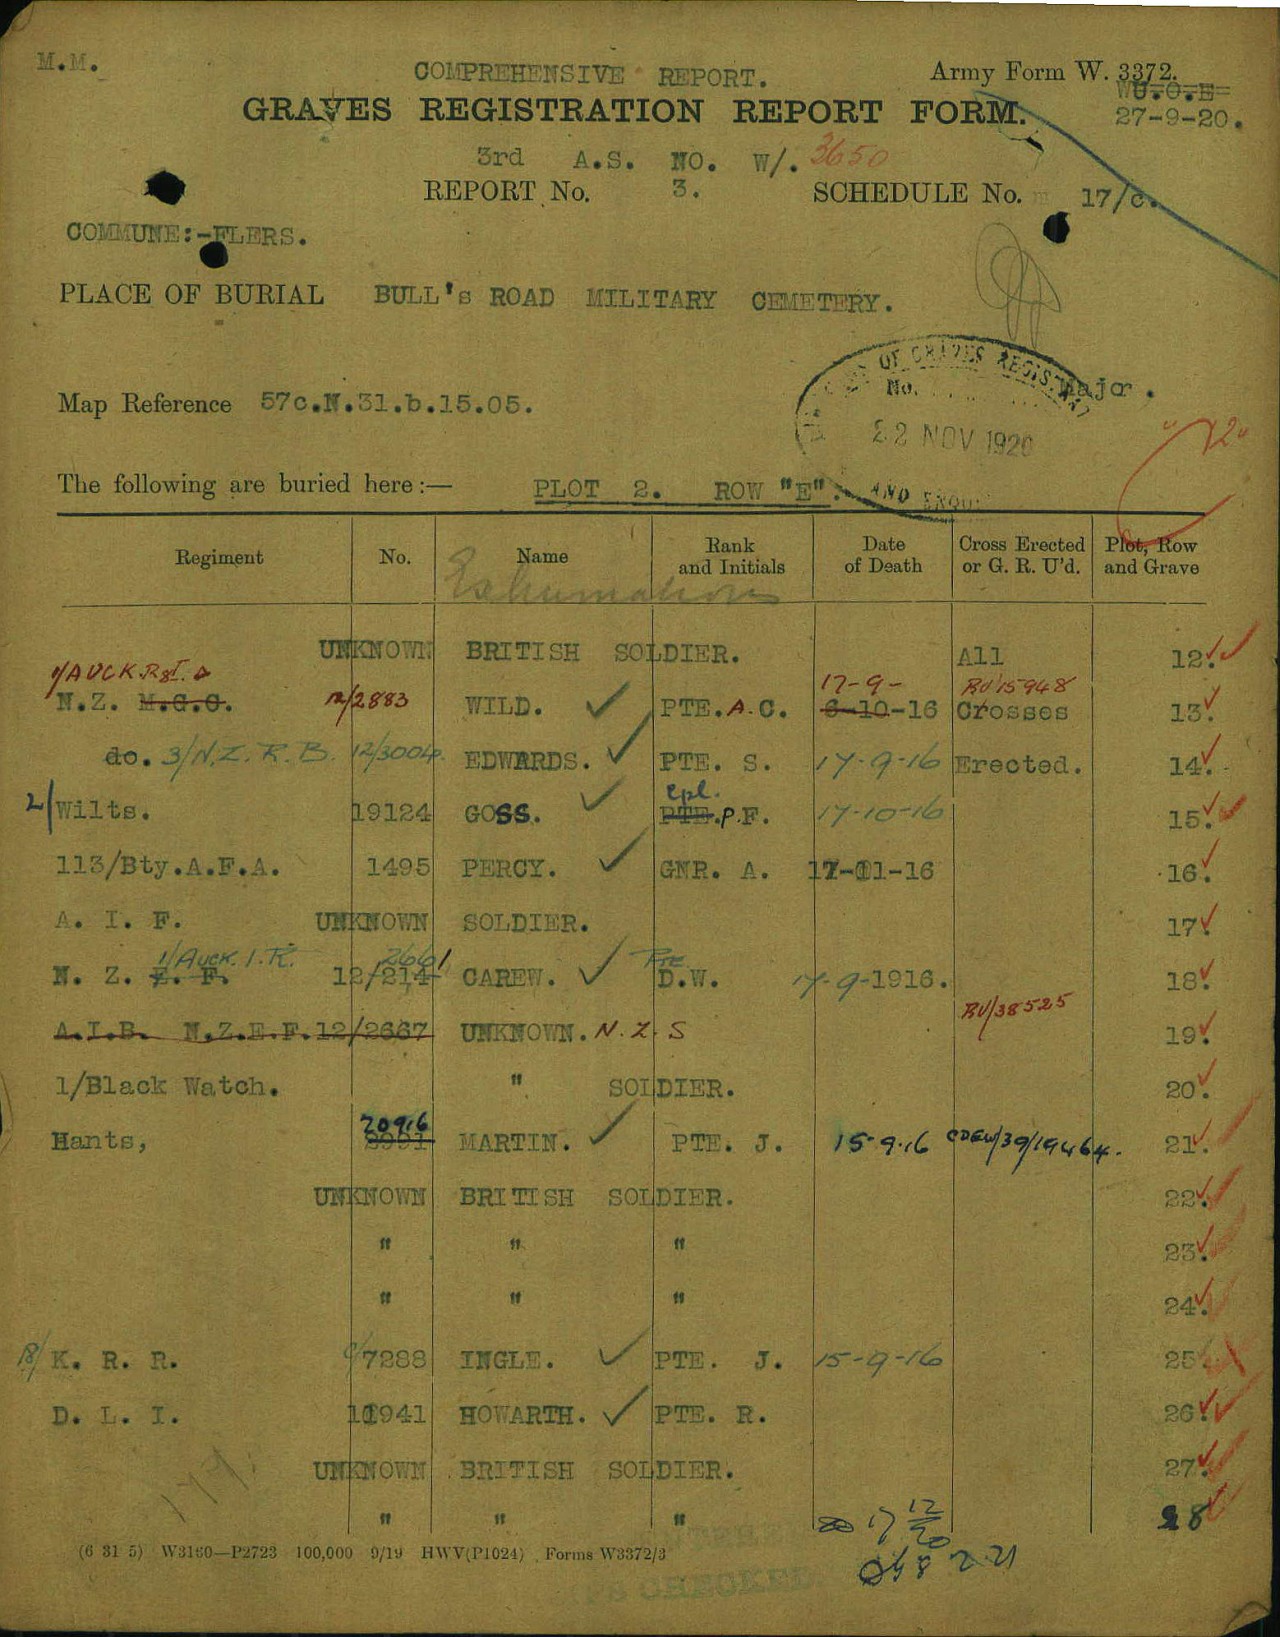 M.M.
COMPREHENSIVE REPORT.
Army Form W. 3372.
GRAVES REGISTRATION REPORT FORM.
27-9-20.
3rd A.S. NO. W/. 3650
REPORT No. 3. SCHEDULE No. 17/c.
COMMUNE:-FLERS.
PLACE OF BURIAL BULL's ROAD MILITARY CEMETERY.
OF GRAVES REGIST
No.
Major.
Map Reference 57c.N.31.b.15.05.
22 NOV 1920
"12"
The following are buried here:— PLOT 2. ROW "E".
AND ENQU
Regiment No. Name Rank and Initials Date of Death Cross Erected or G. R. U'd. Plot, Row and Grave
Exhumations
UNKNOWN BRITISH SOLDIER. All 12.
1/AUCK.R 17-9- RU 15948
N.Z. M.G.C. 12/2883 WILD. PTE. A.C. 6-10-16 Crosses 13.
do. 3/N.Z.R.B. 12/3004. EDWARDS. PTE. S. 17-9-16 Erected. 14.
cpl.
2/Wilts. 19124 GOSS. PTE. P.F. 17-10-16 15.
113/Bty.A.F.A. 1495 PERCY. GNR. A. 17-11-16 16.
A. I. F. UNKNOWN SOLDIER. 17.
1/Auck. I.R. 2661 Pte
N. Z. E. F. 12/214 CAREW. D.W. 17-9-1916. 18.
RU/38525
A.I.B. N.Z.E.F. 12/2667 UNKNOWN. N.Z.S 19.
1/Black Watch. " SOLDIER. 20.
20916
Hants, MARTIN. PTE. J. 15-9-16 21.
UNKNOWN BRITISH SOLDIER. 22.
" " " 23.
" " " 24.
18/ K. R. R. C/7288 INGLE. PTE. J. 15-9-16 25
D. L. I. 11941 HOWARTH. PTE. R. 26.
UNKNOWN BRITISH SOLDIER. 27.
" " " 17 12/20 28
8 2 21
(6 31 5) W3160—P2723 100,000 9/19 HWV(P1024) Forms W3372/3
CHECKED